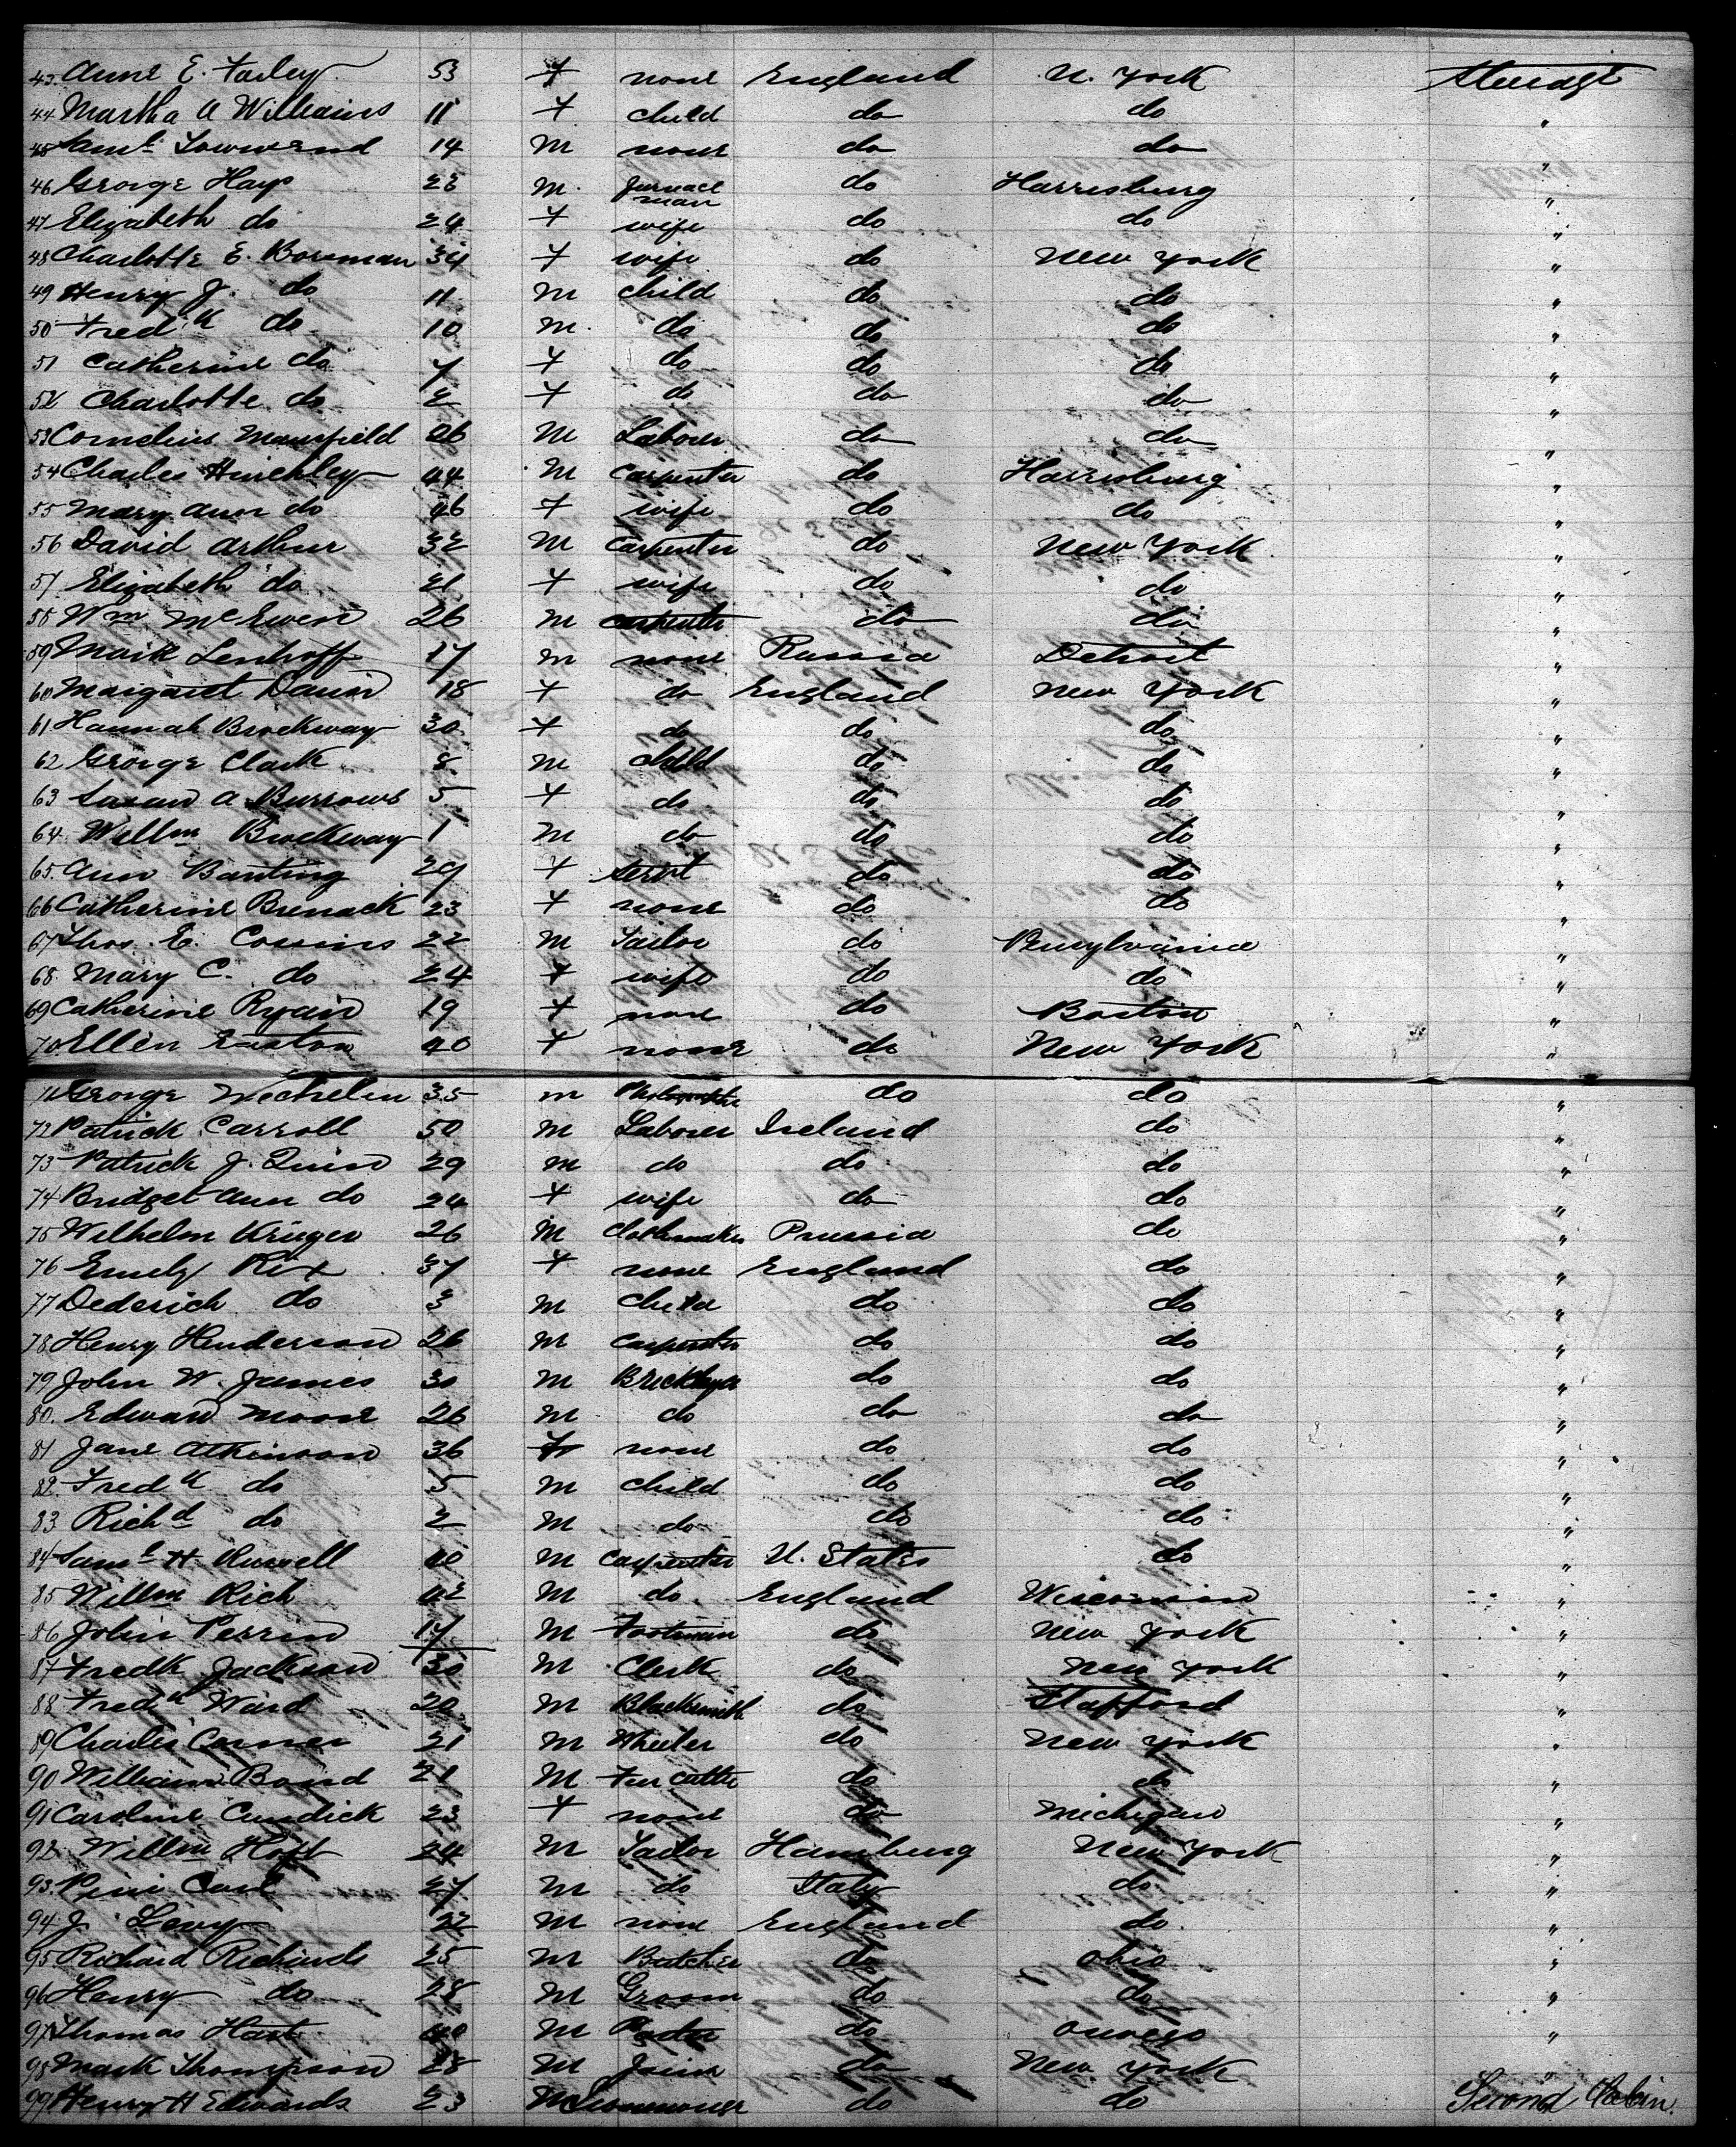 43. Anne E. Farley 53 f none England N. York Steerage
44 Martha A Williams 11 f child do do "
45 Saml Townsend 14 m none do do "
46 George Hays 28 m. Furnace man do Harrisburg "
47 Elizabeth do 24 f wife do do "
48 Charlotte E. Boreman 34 f wife do New York "
49 Henry J. do 11 m child do do "
50 Fredk do 10 m. do do do "
51 Catherine do 7 f do do do "
52 Charlotte do 2 f do do do "
53 Cornelius Mansfield 26 m Laborer do do "
54 Charles Hinchley 44 m Carpenter do Harrisburg "
55 Mary Ann do 46 f wife do do "
56 David Arthur 32 m Carpenter do New York "
57 Elizabeth do 21 f wife do do "
58 Wm McEwen 26 m Carpenter do do "
59 Mark Lenhoff 17 m none Russia Detroit "
60 Margaret 18 f do England New York "
61 Hannah Brockway 30 f do do do "
62 George Clark 8 m child do do "
63 Susan A Burrows 5 f do do do "
64 Willm Brockway 1 m do do do "
65. Ann Banting 29 f servt do do "
66 Catherine 23 f none do do "
67 Thos. E. Cossins 22 m Tailor do Pensylvania "
68. Mary C. do 24 f wife do do "
69 Catherine Ryan 19 f none do Boston "
70 Ellen Easton 40 f none do New York "
71 George 35 m do do "
72 Patrick Carroll 50 m Laborer Ireland do "
73 Patrick J. Quinn 29 m do do do "
74 Bridget Ann do 24 f wife do do "
75 Wilhelm Krüger 26 m Clothmaker Prussia do "
76 Emily Rix 37 f none England do "
77 Dederich do 3 m child do do "
78 Henry Henderson 26 m Carpenter do do "
79 John W. James 30 m Bricklyr do do "
80. Edward Moore 26 m do do do "
81 Jane Atkinson 36 f none do do "
82. Fredk do 5 m child do do "
83 Richd do 2 m do do do "
84 Saml H Russell 40 m Carpenter U. States do "
85 Willm Rich 42 m do England Wisconsin "
86 John Perrin 17 m Footman do New York "
87 Fredk Jackson 30 m Clerk do New York "
88 Fredk Ward 20 m Blacksmith do Stafford "
89 Charles 21 m Wheeler do New York "
90 William Bond 21 m Fur cutter do do "
91 Caroline Cundick 23 f none do Michigan "
92. Willm Hoft 24 m Tailor Hamburg New York "
93. 27 m do Italy do "
94. J. Levy 22 m none England do "
95 Richard Richards 25 m Butcher do Ohio "
96 Henry do 28 m Groom do do "
97 Thomas Hart 40 m do "
98 Mark Thompson 28 m Joiner do New York "
99 Henry H Edwards 23 m do do Second Cabin.